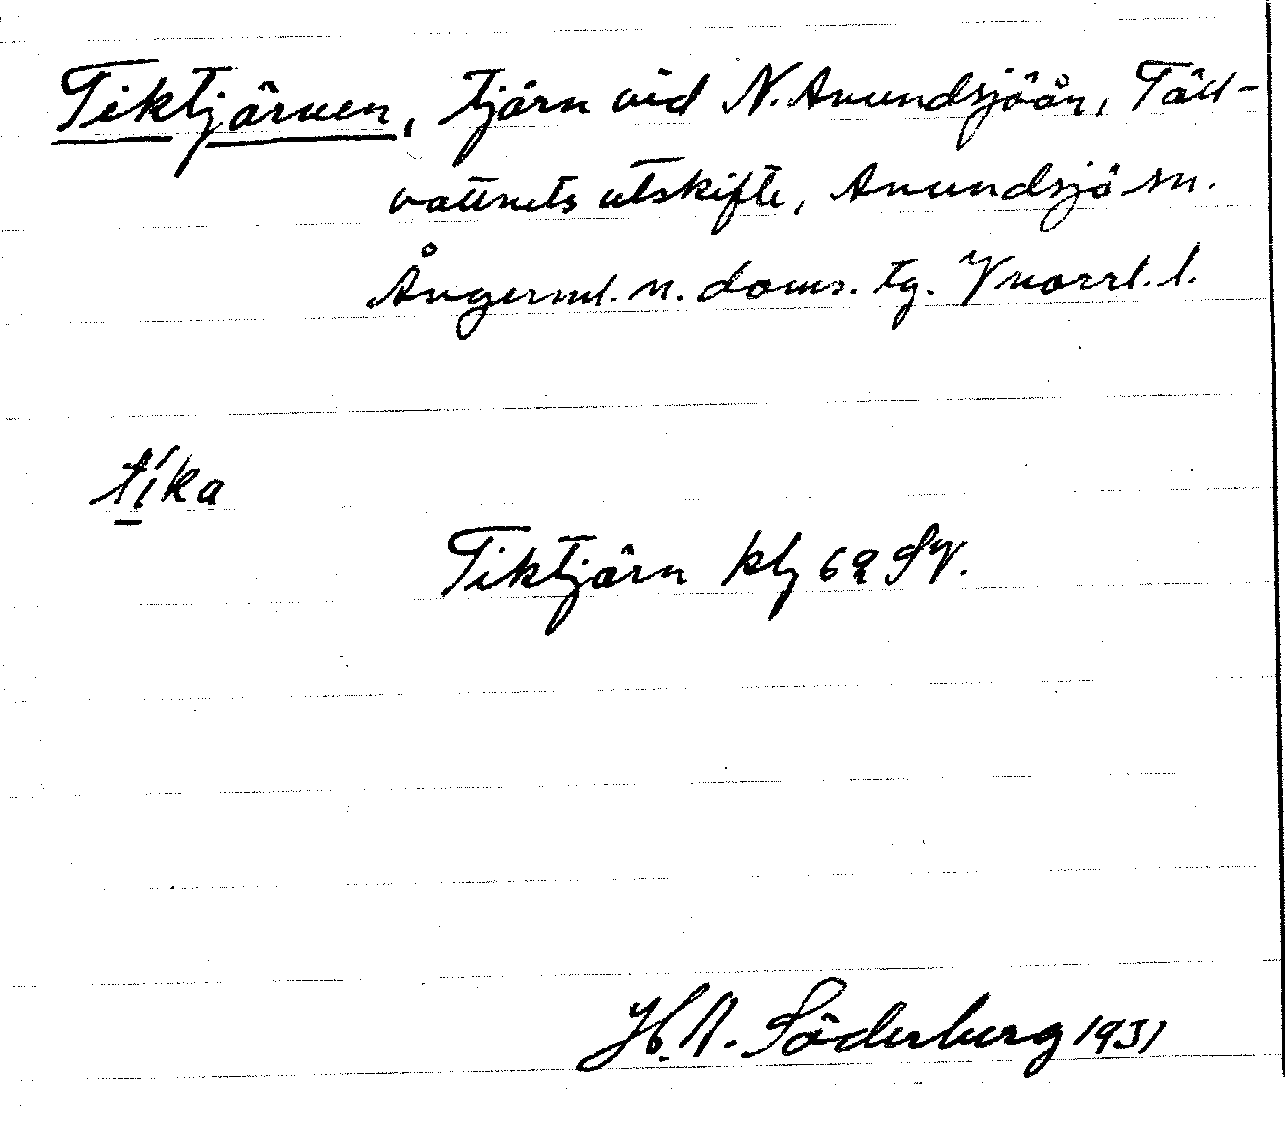 Tiktjärnen, tjärn vid N. Anundsjöån, Täll-
vattnets utskifte, Anundsjö sn.
Ångerml. n. doms. tg. Vnorrl. l.
tíka
Tiktjärn kbl 62 SV.
H. A. Söderberg 1931